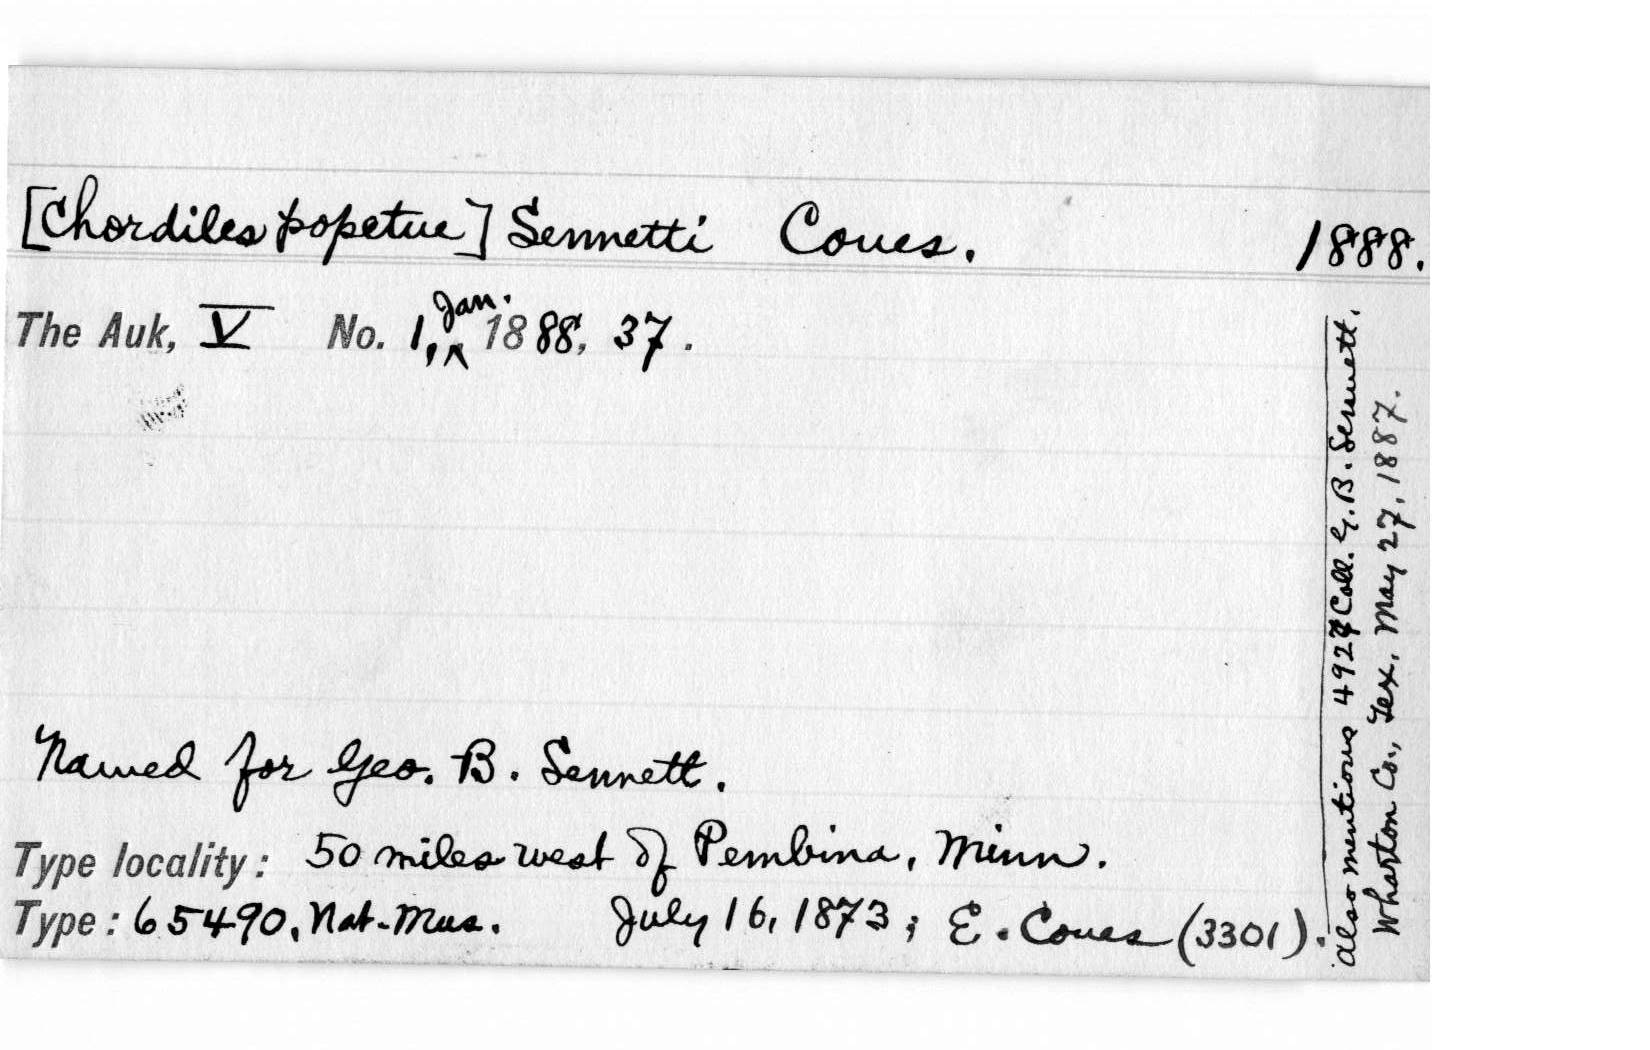 [Chordiles popetue] Sennetti Coues. 1888.
The Auk, V No. 1, Jan. 1888, 37.
Named for Geo. B. Sennett.
Type locality: 50 miles west of Pembina, Minn.
Type: 65490, Nat. Mus. July 16, 1873; E. Coues (3301).
Also mentions Coll. G. B. Sennett,
Wharton Co., Tex, May 27, 1887.